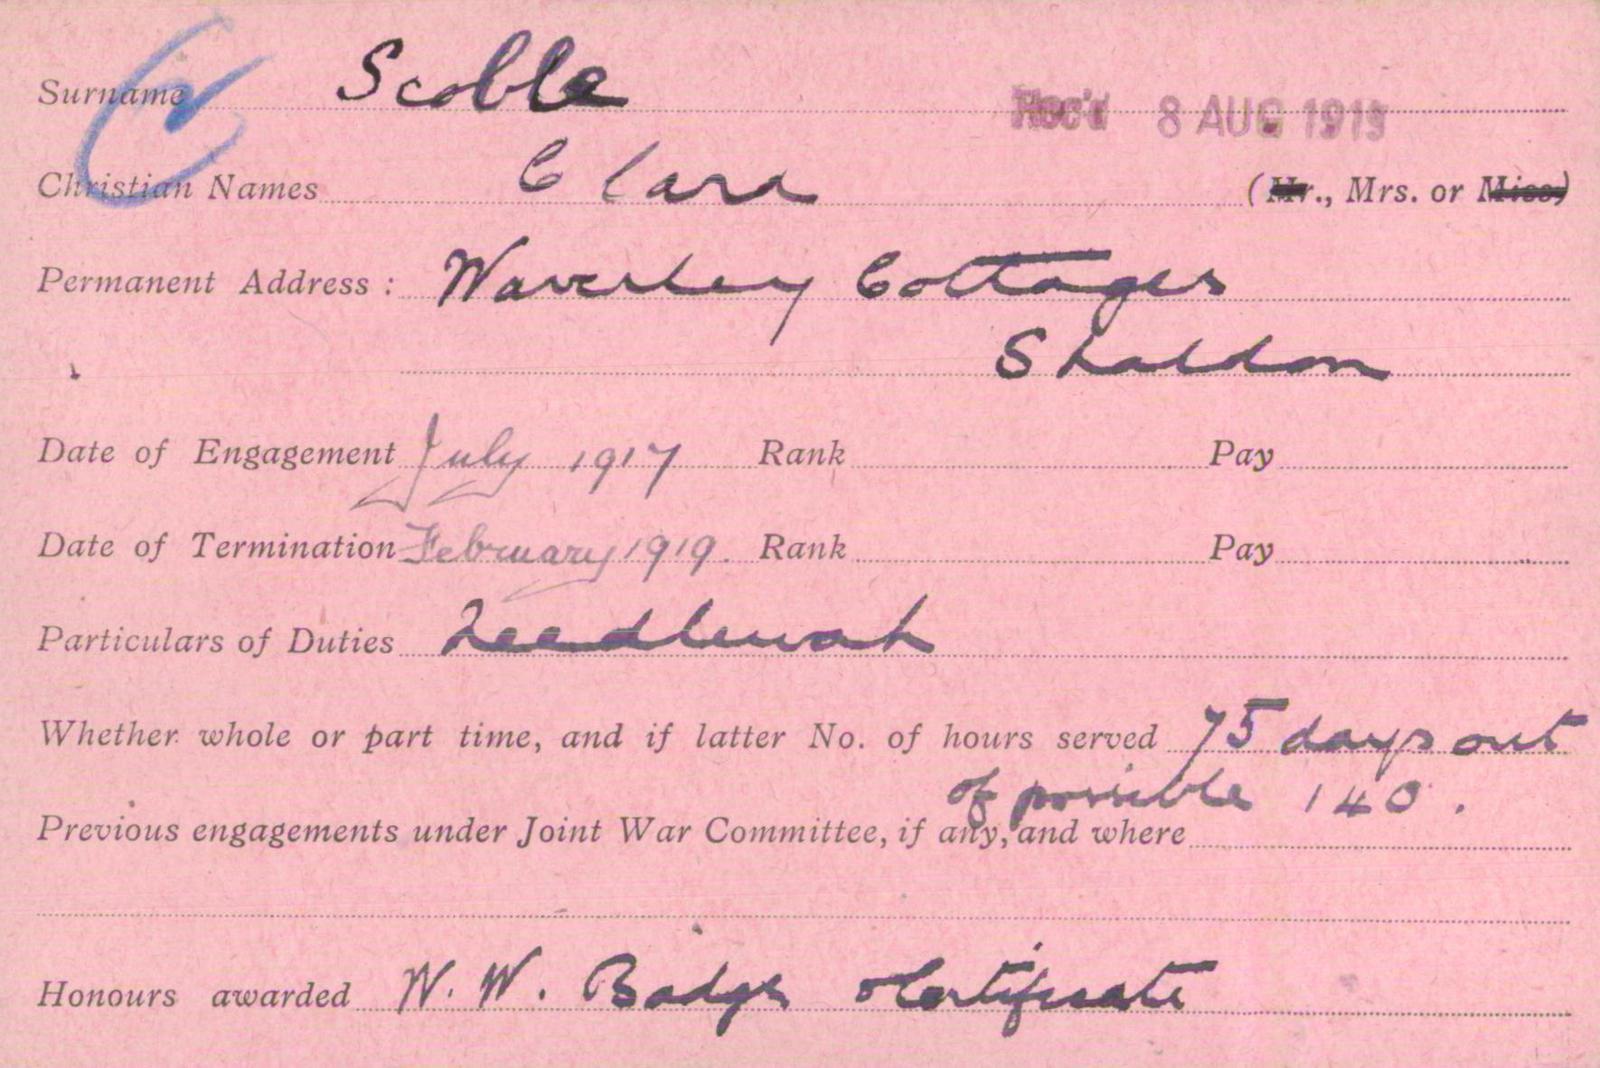 Surname Scoble
Rec'd 8 AUG 1919
Christian Names Clara (Mr., Mrs. or Miss)
Permanent Address : Waverley Cottages
Shaldon
Date of Engagement July 1917 Rank Pay
Date of Termination February 1919. Rank Pay
Particulars of Duties Needlework
Whether whole or part time, and if latter No. of hours served 75 days out
of possible 140.
Previous engagements under Joint War Committee, if any, and where
Honours awarded W. W. Badge & Certificate